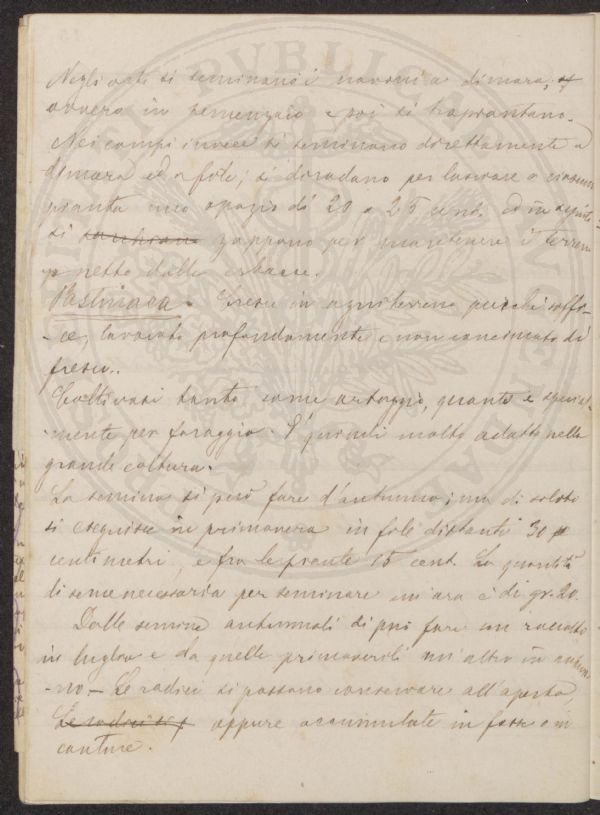 Negli orti si seminano i navoni a dimora,
ovvero in semenzaio e poi si trapiantano.
Nei campi invece si seminano direttamente a
dimora ed a file; si diradano per lasciare a ciascuna
pianta uno spazio di 20 a 25 cent. ed in seguito
si zappano per mantenere il terreno
netto dalle erbacce.
Pastinaca. Cresce in ogni terreno purchè soffi-
-ce, lavorato profondamente e non concimato di
fresco..
Coltivasi tanto come ortaggio, quanto e special-
-mente per foraggio. E' quindi molto adatta nella
grande coltura.
La semina si può fare d'autunno; ma di solito
si eseguisce in primavera in file distanti 30
centimetri, e fra le piante 15 cent. La quantità
di seme necessaria per seminare un'ara è di gr. 20.
Dalle semine autunnali si può fare un raccolto
in luglio e da quelle primaverili un'altro in autun-
-no - Le radici si possono conservare all'aperto,
Le radici si oppure accumulate in fosse o in
cantine.